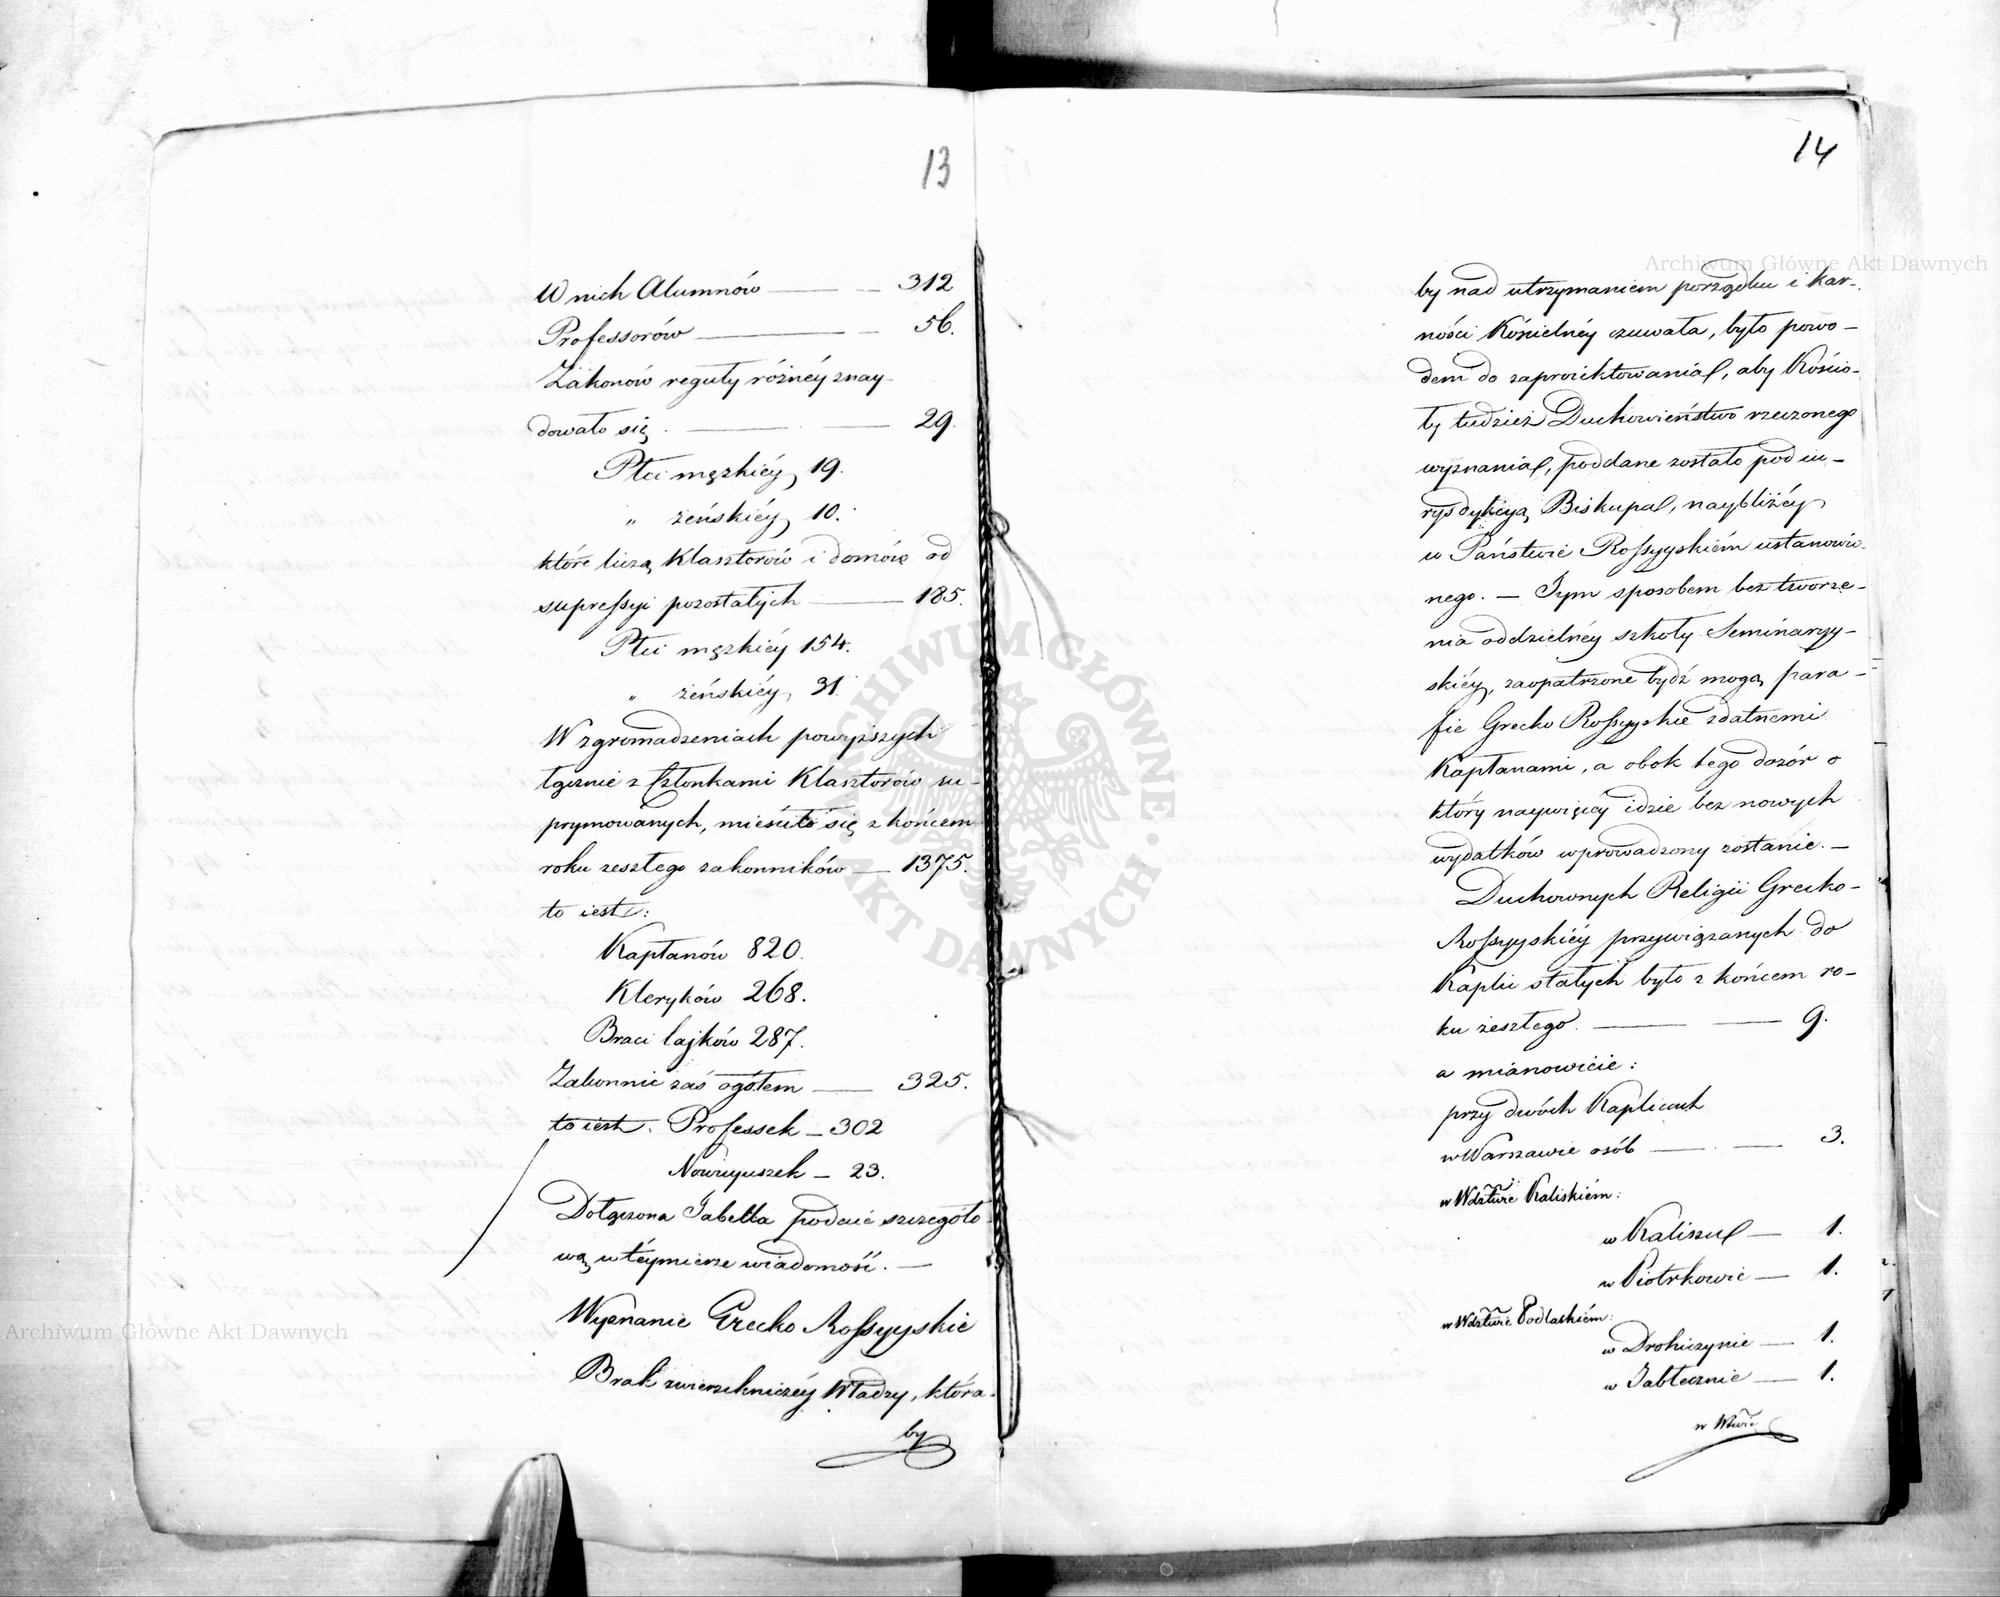 13
W nich Alumnów — — 312
Professorów — — 56.
Zakonów reguły różnéy znay-
dowało się . — — 29.
Płci męzkiéy 19.
" żeńskiéy 10.
które liczą Klasztorów i domów od
supressyi pozostałych — 185.
Płci męzkiéy 154.
" żeńskiéy, 31.
W zgromadzeniach powyższych
łącznie z Członkami Klasztorów su-
prymowanych, mieściło się z końcem
roku zeszłego zakonników — 1375.
to iest:
Kapłanów 820.
Kleryków 268.
Braci lajków 287.
Zakonnic zaś ogółem — 325.
to iest: Professek — 302
Nowicyuszek — 23.
Dołączona Tabella podaie szczegóło-
wą w téymierze wiadomość. —
Wyznanie Grecko Rossyyskie
Brak zwierzchniczéy Władzy, która-
by
14
by nad utrzymaniem porządku i kar-
ności Kościelnéy czuwała, było powo-
dem do zaproiektowania, aby Kościo-
ły tudzież Duchowieństwo rzeczonego
wyznania, poddane zostało pod iu-
rysdykcyą Biskupa, naybliżéy
w Państwie Rossyyskiém ustanowio-
nego. — Tym sposobem bez tworze-
nia oddzielnéy szkoły Seminaryy-
skiéy, zaopatrzone bydź mogą para-
fie Grecko Rossyyskie zdatnemi
Kapłanami, a obok tego dozór o
który naywięcéy idzie bez nowych
wydatków wprowadzony zostanie. —
Duchownych Religii Grecko-
Rossyyskiéy przywiązanych do
Kaplic stałych było z końcem ro-
ku zeszłego. — — 9.
a mianowicie:
przy dwóch Kaplicach
w Warszawie osób — — 3.
w Wdztwie Kaliskiém:
w Kaliszu — 1.
w Piotrkowie — 1.
w Wdztwie Podlaskiém:
w Drohiczynie — 1.
w Jabłecznie — 1.
w Wdztwie
Archiwum Główne Akt Dawnych
Archiwum Główne Akt Dawnych
ARCHIWUM GŁÓWNE · AKT DAWNYCH ·